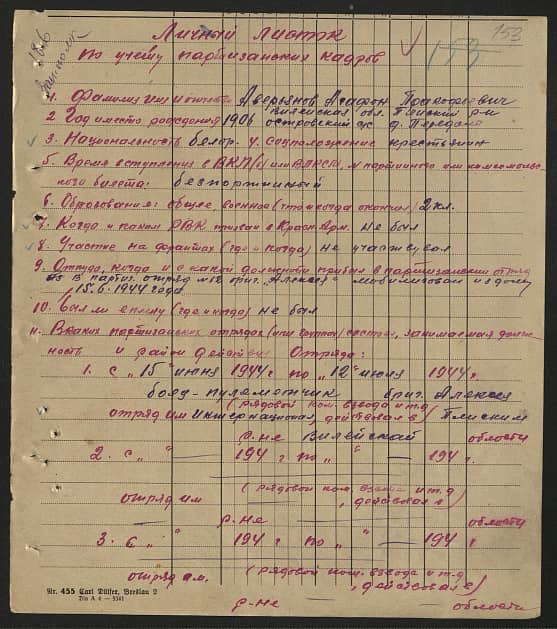 153
153
Личный листок
по учету партизанских кадров
1. Фамилия имя и отчество Аверьянов Агафон Прокофьевич
Вилейская обл. Плиский р-н
2 Год и место рождения 1906 островский с/с д.
3. Национальность белор. 4. Соцположение крестьянин
5. Время вступления в ВКП(б) или ВЛКСМ, № партийного или комсомольс-
кого билета: беспартийный
6. Образования: общее, военное (что и когда окончил) 2 кл.
7. Когда и каким РВК призван в Красн. Арм. не был
8. Участие на фронтах (где и когда) не участвовал
9. Откуда, когда и с какой должности прибыл в партизанский отряд
в партиз. отряд №12 бриг. „Алексея" мобилизован из дому
15.6.1944 года
10. Был ли в плену (где и когда) не был
11. В каких партизанских отрядах (или группах) состоял, занимаемая долж-
ность и район действия Отряда:
1. с „15" июня 1944 г по „12" июля 1944 г.
боец-пулеметчик бриг. Алексея
(рядовой ком. взвода и т.д
отряд им интернационал, действовал в) Плиским
р-не Вилейской области
2. с „ " — 194 г по „ " — 194 г.
(рядовой ком. взвода и т.д
отряд им , действовал в)
р-не области
3. с „ " — 194 г по „ " — 194 г
(рядовой ком. взвода и т.д
отряд им. , действовал в)
р-не — области
Nr. 455 Carl Dülfer, Breslau 2
Din A 4 — 5341